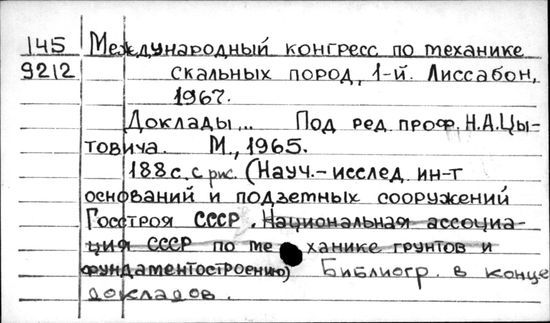 145 Международный конгресс по механике
9212 скальных пород, 1-й. Лиссабон,
1967.
Доклады... Под ред. проф. Н.А.Цы-
товича. М., 1965.
188 с. с рис. (Науч.-исслед. ин-т
оснований и подземных сооружений
Госстроя СССР. Национальная ассоциа-
ция СССР по механике грунтов и
фундаментостроению) Библиогр. в конце
докладов.